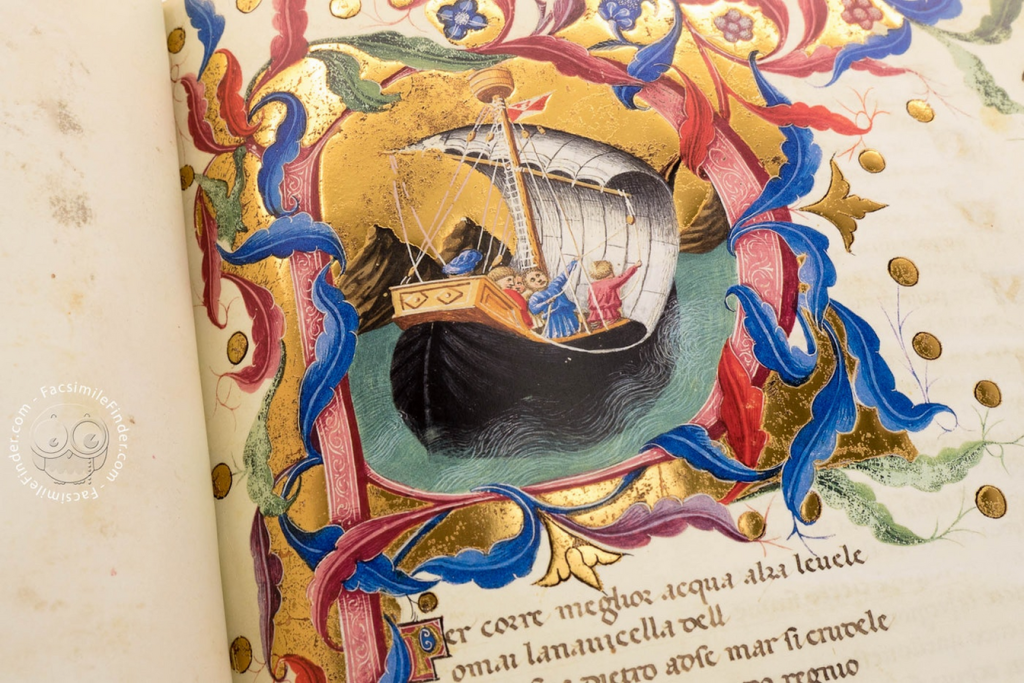 Per corre meglior acqua alza leuele
omai lanauicella dell
dietro adse mar si crudele
regnio
FacsimileFinder.com - FacsimileFinder.com -